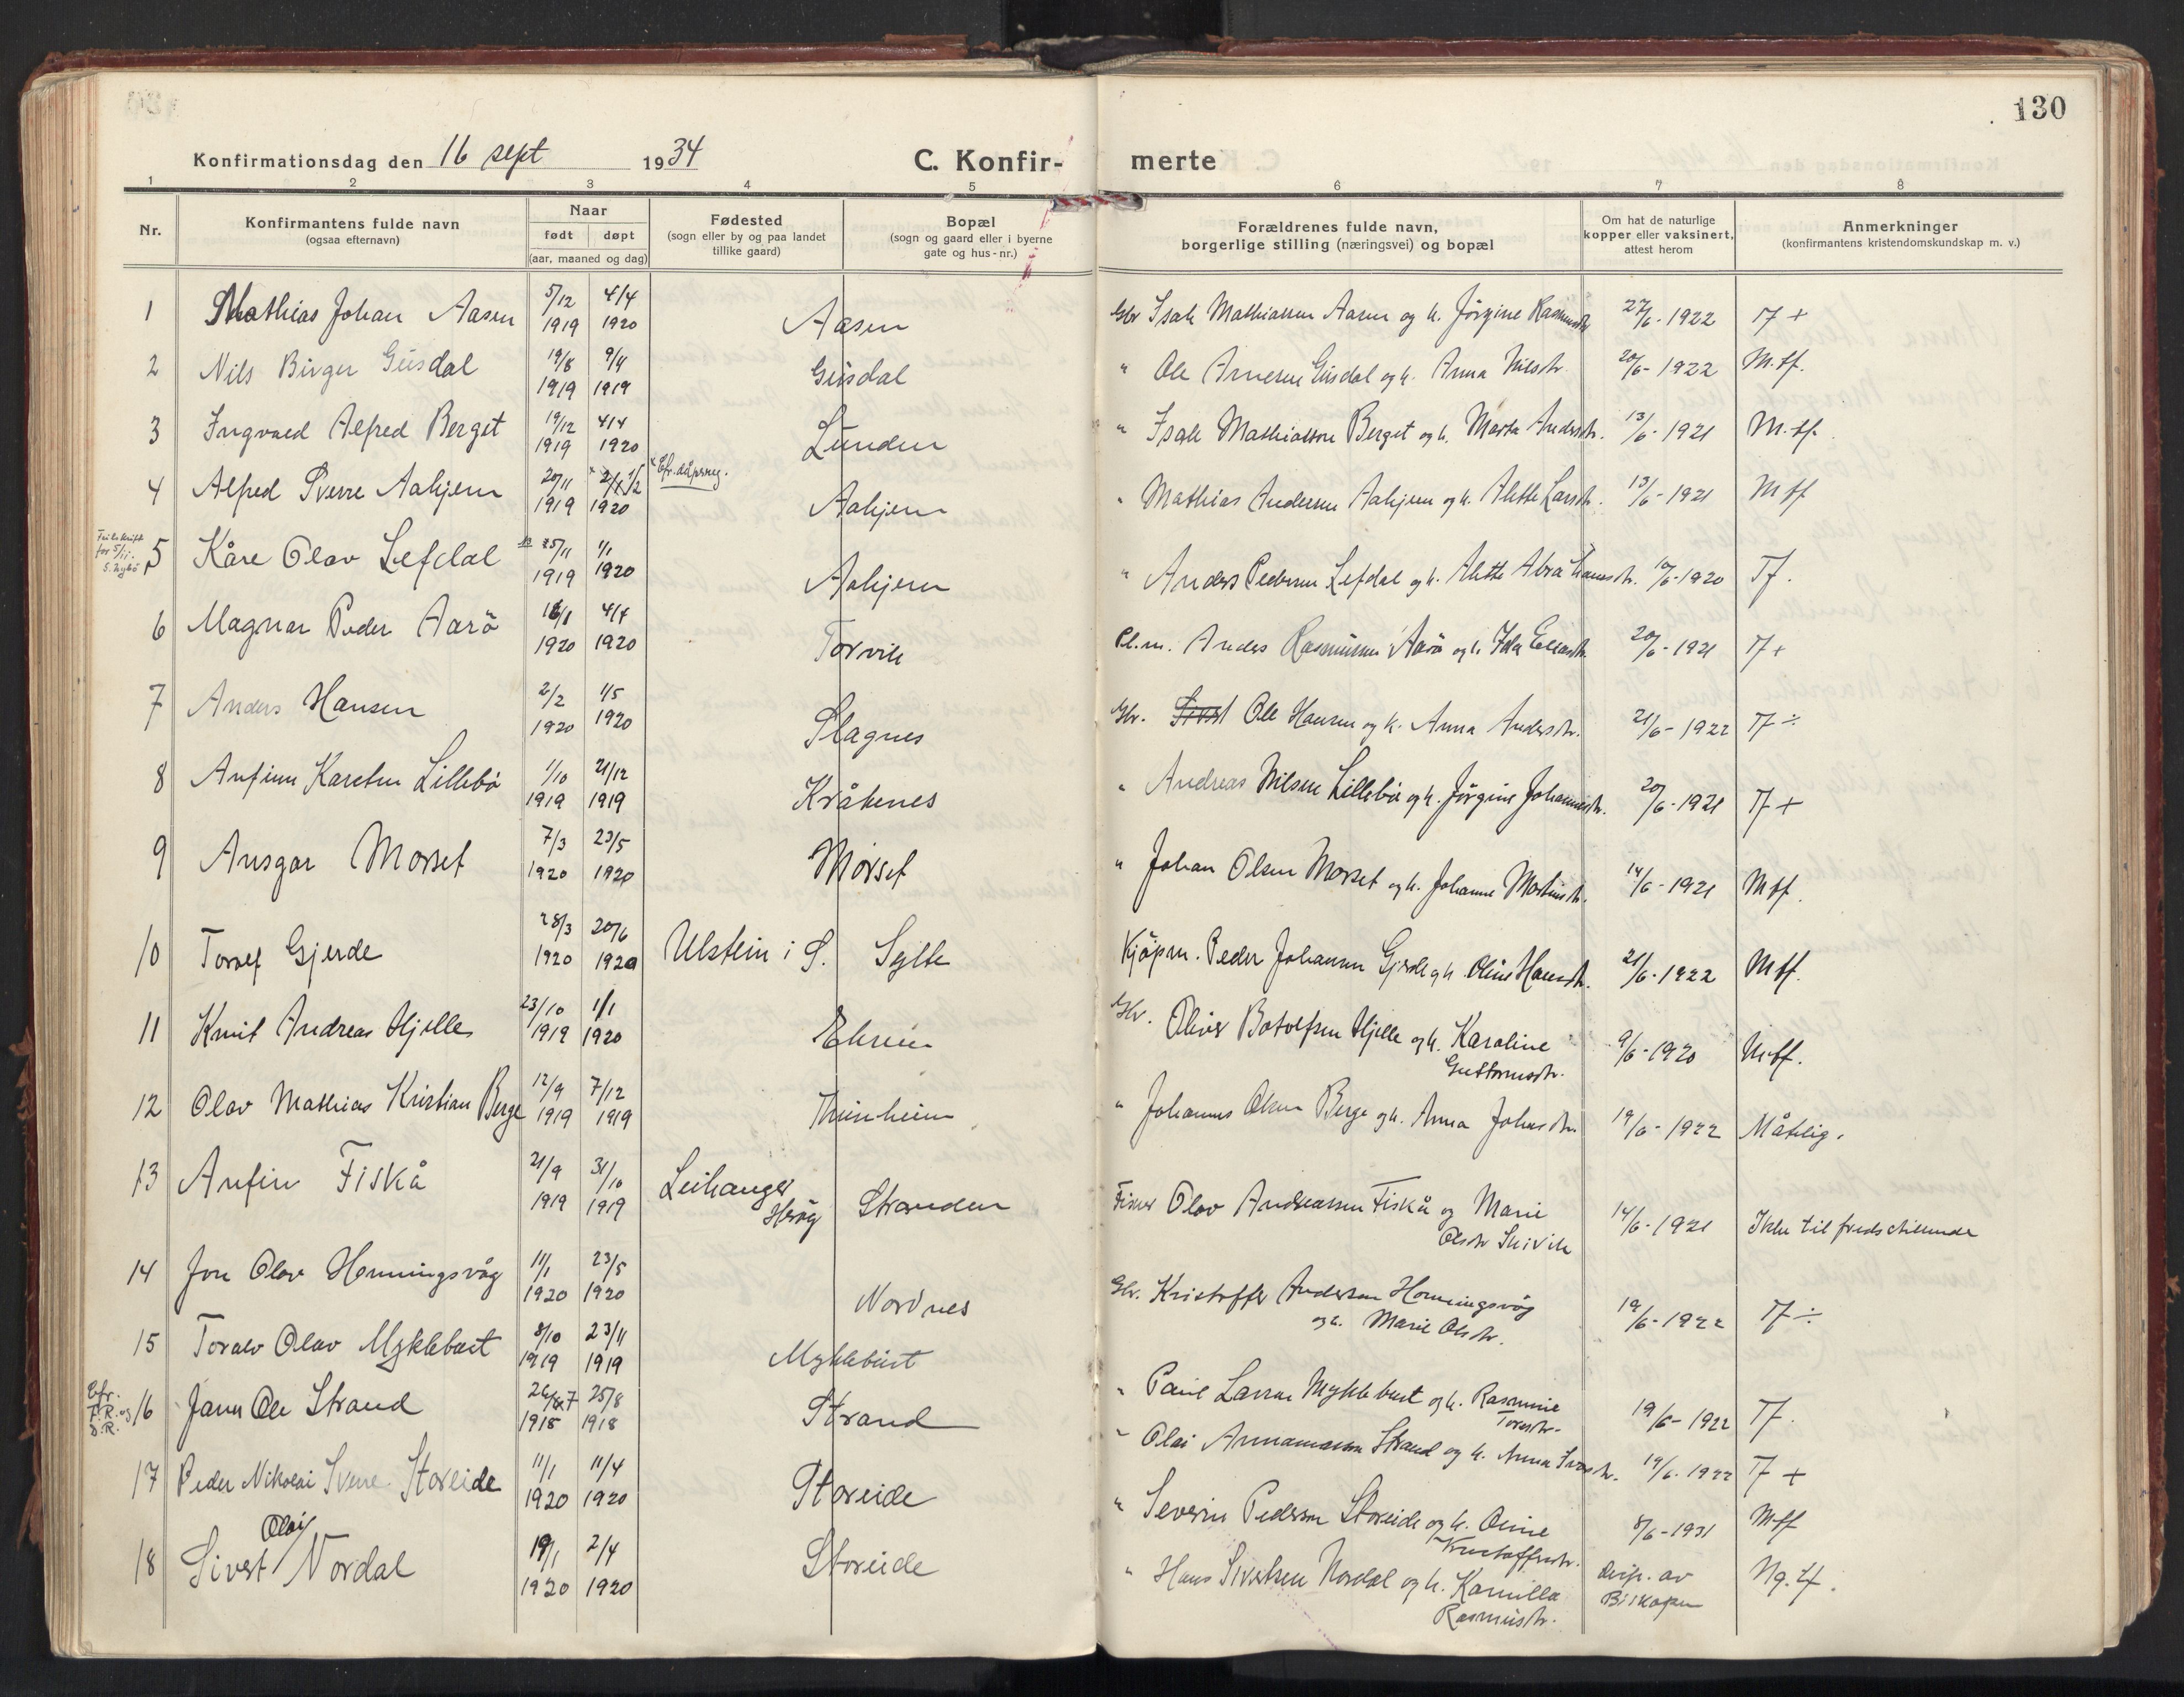 130
Konfirmationsdag den 16 sept 1934
C. Konfir- merte
1 2 3 4 5 6 7 8
Nr.
Konfirmantens fulde navn
(ogsaa efternavn)
Naar
født døpt
(aar, maaned og dag)
Fødested
(sogn eller by og paa landet
tillike gaard)
Bopæl
(sogn og gaard eller i byerne
gate og hus-nr.)
Forældrenes fulde navn,
borgerlige stilling (næringsvei) og bopæl
Om hat de naturlige
kopper eller vaksinert,
attest herom
Anmerkninger
(konfirmantens kristendomskundskap m. v.)
1 Mathias Johan Aasen 5/12 1919 4/4 1920 Aasen Gbr Isak Mathiassen Aasen og h. Jörgine Rasmusdtr 27/6-1922 Tf +
2 Nils Birger Gusdal 19/8 1919 9/11 1919 Gusdal " Ole Arnesen Gusdal og h. Anna Nilsdtr. 20/6-1922 M.tf.
3 Ingvald Alfred Berget 19/12 1919 4/4 1920 Lunden " Isak Mathiassen Berget og h. Marta Andersdtr. 13/6-1921 M.tf.
4 Alfred Sverre Aahjem 20/11 1919 x 2/4 1/2 1920 x Cfr. dåpsreg. Aahjem " Mathias Andersen Aahjem og h. Alette Larsdtr. 13/6-1921 M tf
Feilskrift
for 5/11.
5 Kåre Olav Lefdal 25/11 1919 1/1 1920 Aahjem " Anders Pedersen Lefdal og h. Alette Abrahamsdtr. 10/6-1920 Tf.
6 Magnar Peder Aarö 16/1 1920 4/4 1920 Torvik Pl.m. Anders Rasmussen Aarö og h. Ida Eliasdtr. 20/6-1921 Tf +
7 Anders Hansen 2/2 1920 1/5 1920 Slagnes Gbr. Sivert Ole Hansen og h. Anna Andersdtr. 21/6-1922 Tf ÷
8 Anfinn Karsten Lillebö 1/10 1919 21/12 1919 Kråkenes " Andreas Nilsen Lillebö og h. Jörgine Johannesdtr. 20/6-1921 Tf +
9 Ansgar Morset 7/3 1920 23/5 1920 Morset " Johan Olsen Morset og h. Johanne Martinsdtr. 14/6-1921 M tf.
10 Toralf Gjerde 28/3 1920 20/6 1920 Ulstein i S. Sylte Kjöpm. Peder Johansen Gjerde og h. Oline Hansdtr. 21/6-1922 M tf.
11 Knut Andreas Hjelle 23/10 1919 1/1 1920 Ekrem Gbr. Oliver Botolfsen Hjelle og h. Karoline
Guttormsdtr. 9/6-1920 M.tf.
12 Olav Mathias Kristian Berge 12/9 1919 7/12 1919 Thunheim " Johannes Olsen Berge og h. Anna Johnsdtr. 19/6-1922 Måtelig.
13 Anfin Fiskå 21/9 1919 31/10 1919 Leikanger
Heröy Stranden Fisker Olav Andreassen Fiskå og Marie
Olsdtr Skivik 14/6-1921 Ikke tilfredsstillende
14 Jon Olav Honningsvåg 11/1 1920 23/5 1920 Nordnes Gbr. Kristoffer Andersen Honningsvåg
og h. Marie Olsdtr. 19/6-1922 Tf ÷
15 Toralv Olav Myklebust 8/10 1919 23/11 1919 Myklebust " Paul Larsen Myklebust og h. Rasmine
Toresdtr. 19/6-1922 Tf.
Cfr.
F.R. og
D.R.
16 Jann Ole Strand 26/7 1918 25/8 1918 Strand " Olai Annanassen Strand og h. Anna Ivarsdtr. 19/6-1922 Tf +
17 Peder Nikolai Sverre Storeide 11/1 1920 11/4 1920 Storeide " Severin Pedersen Storeide og h. Oline
Kristoffersdtr. 8/6-1931 M tf
18 Sivert Olai Nordal 19/1 1920 2/4 1920 Storeide " Hans Sivertsen Nordal og h. Kamilla
Rasmusdtr. disp. av
Biskopen Ng. tf.